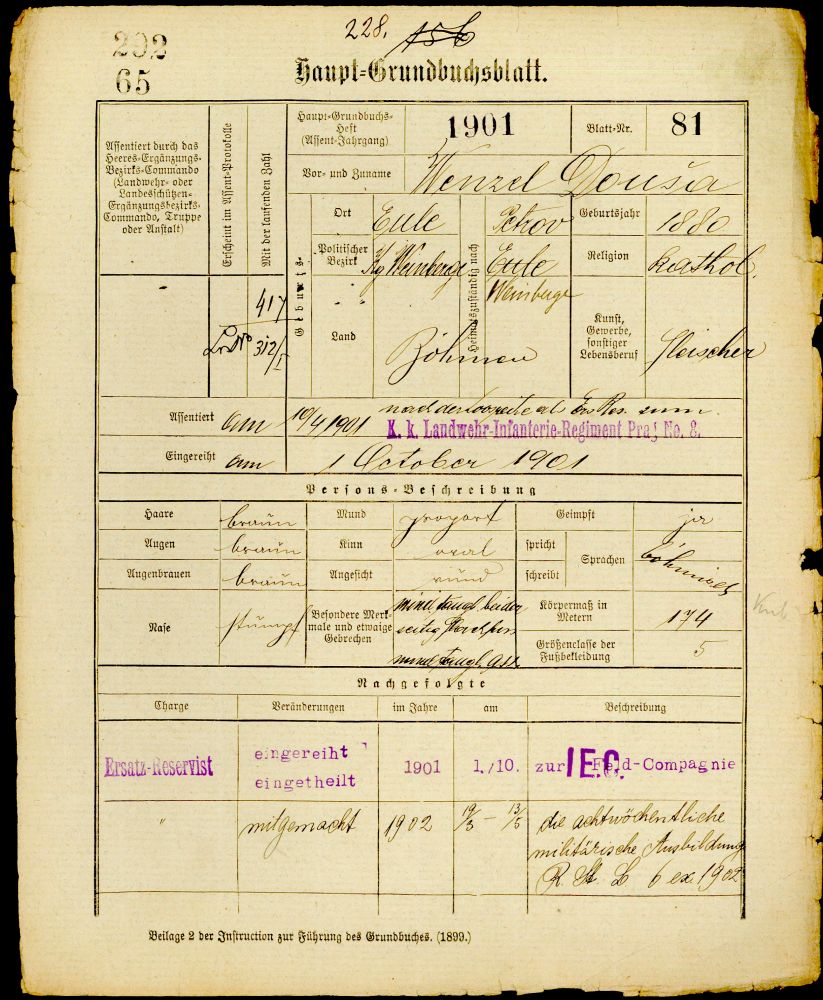 202
65
228.
156
Haupt-Grundbuchsblatt.
Assentiert durch das
Heeres-Ergänzungs-
Bezirks-Commando
(Landwehr- oder
Landesschützen-
Ergänzungsbezirks-
Commando, Truppe
oder Anstalt)
Erscheint im Assent-Protokolle
Mit der laufenden Zahl
417
312/I
Haupt-Grundbuchs-
Heft
(Assent-Jahrgang)
1901
Blatt-Nr.
81
Vor- und Zuname
Wenzel Douša
Geburts-
Ort
Eule
Politischer
Bezirk
Kg Weinberge
" "
Land
Böhmen
Heimatszuständig nach
Petrov
Eule
Weinberge
Geburtsjahr
1880
Religion
kathol.
Kunst,
Gewerbe,
sonstiger
Lebensberuf
Fleischer
Assentiert am 19/4 1901 nach der Losreihe als Ers Res. zum
K. k. Landwehr-Infanterie-Regiment Prag No. 8.
Eingereiht am 1 October 1901
Persons-Beschreibung
Haare braun
Mund proport
Geimpft ja
Augen braun
Kinn oval
spricht
schreibt
Sprachen
böhmisch
Augenbrauen braun
Angesicht rund
Nase stumpf
Besondere Merk-
male und etwaige
Gebrechen
mind. taugl. beider
seitig
mind. taugl.
Körpermaß in
Metern
174
Größenclasse der
Fußbekleidung
5
Nachgefolgte
Charge Veränderungen im Jahre am Beschreibung
Ersatz-Reservist eingereiht
eingetheilt 1901 1./10. zur I E.C. Feld-Compagnie
" mitgemacht 1902 19/3 – 13/5 die achtwöchentliche
militärische Ausbildung
R. St. L 6 ex 1902
Beilage 2 der Instruction zur Führung des Grundbuches. (1899.)